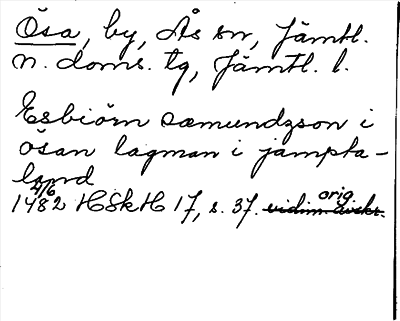 Ösa, by, Ås sn, Jämtl.
n. doms. tg, Jämtl. l.
Esbiörn sæmundzson i
ösan lagman i jampta-
land
4/6
1482 HSkH 17, s. 37. vidim. avskr. orig